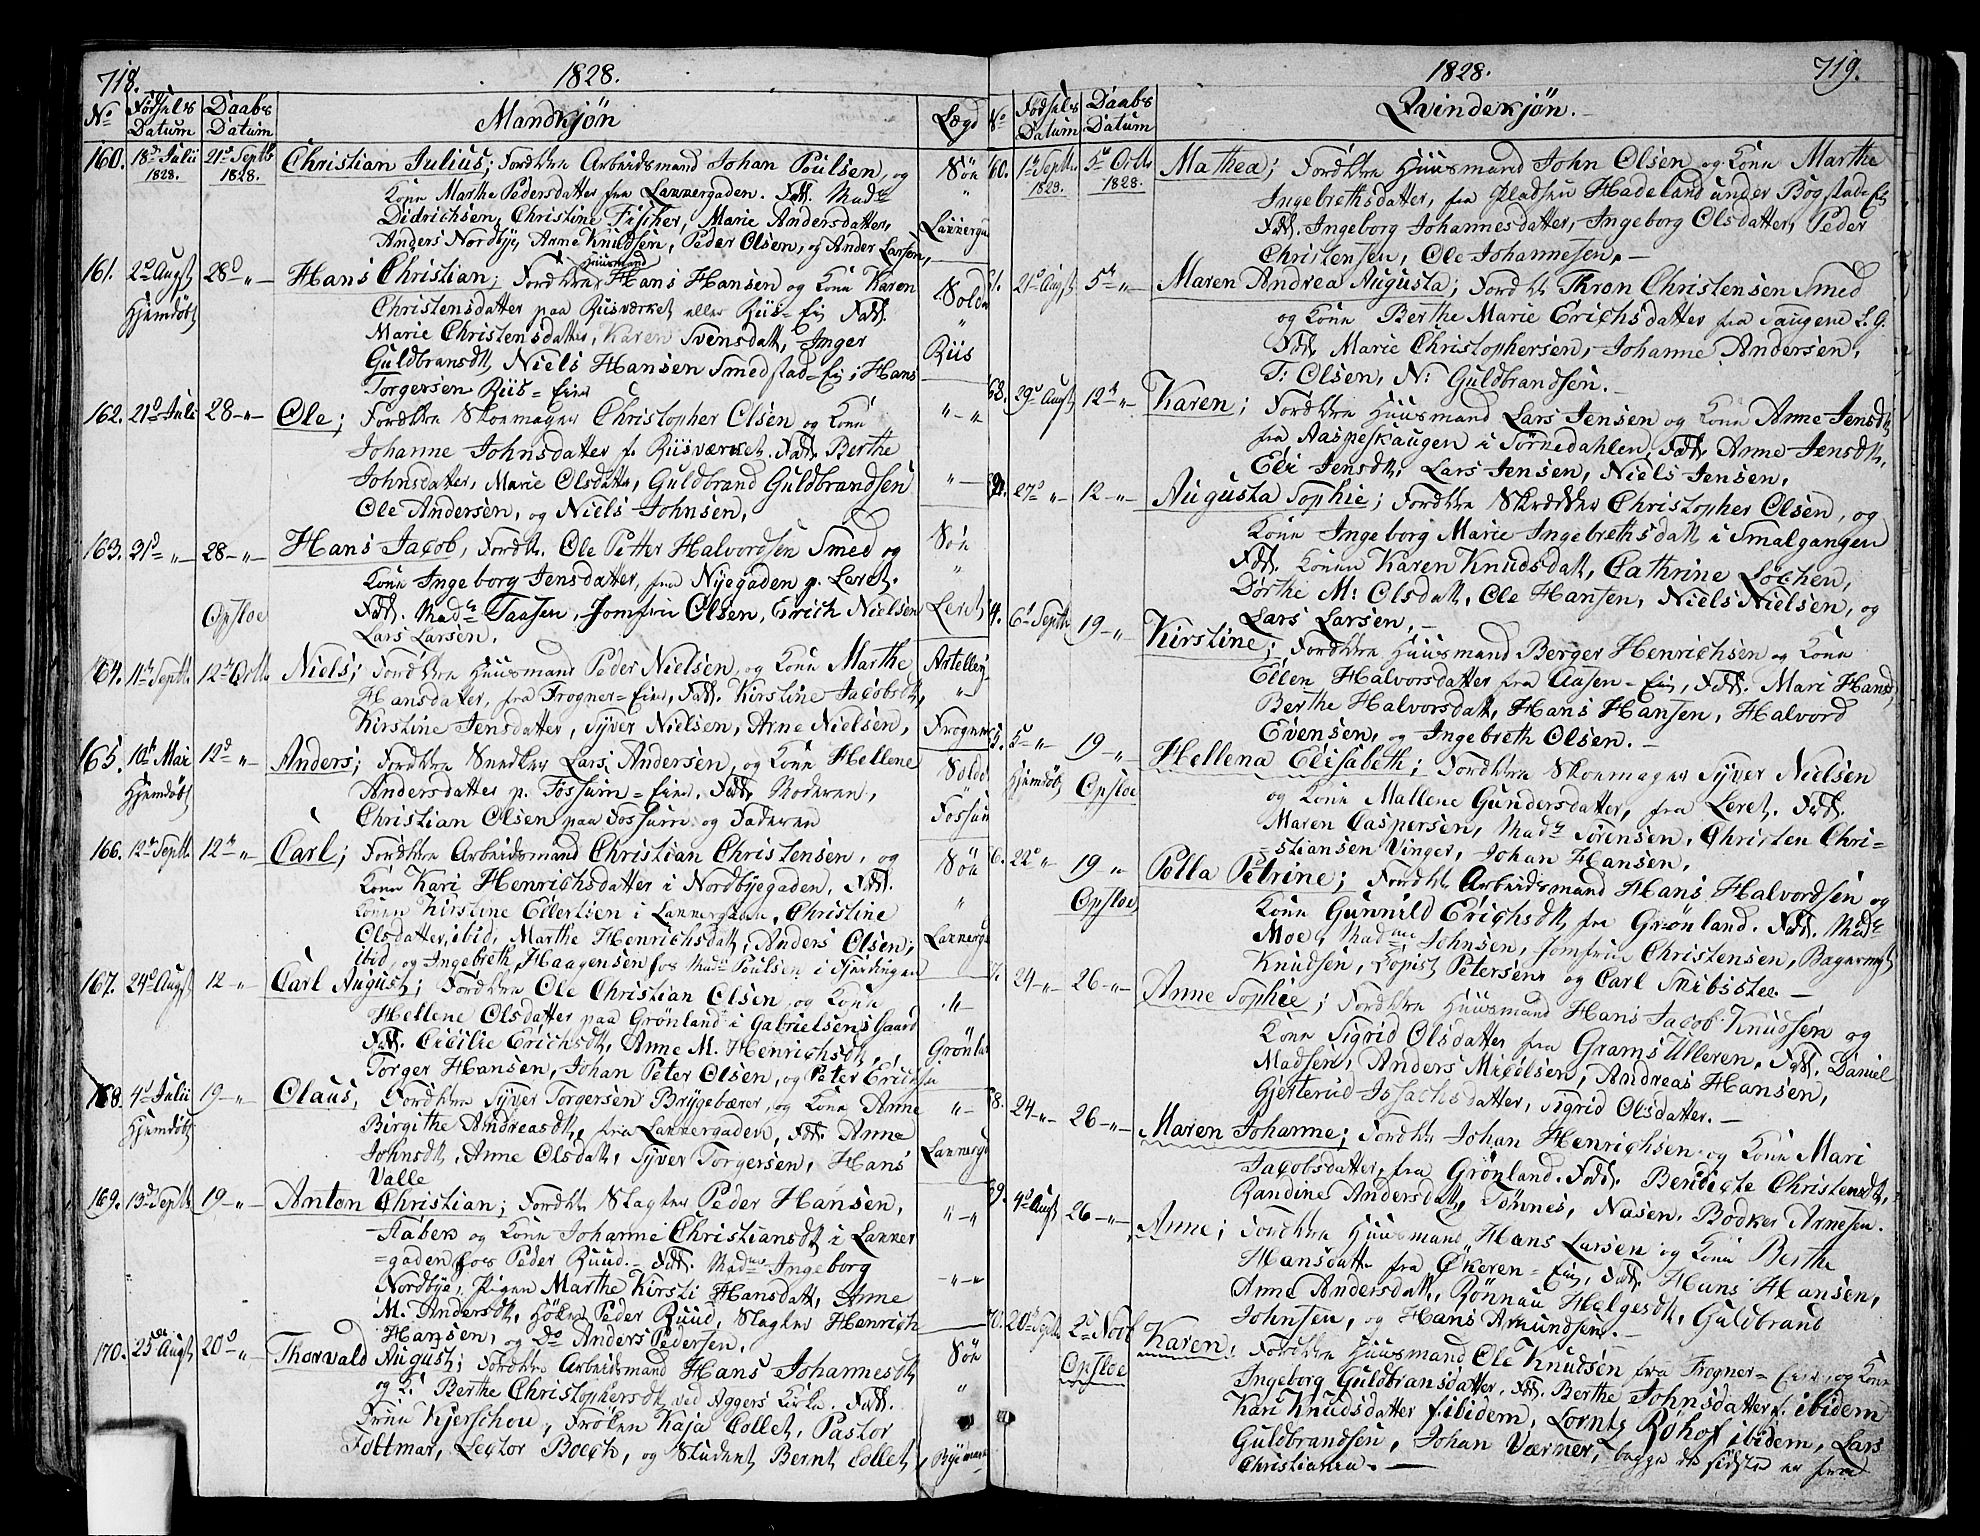 718.
1828.
No Fødsels Datum Daabs Datum Mandkjøn Lægd
160. 18de Julii 1828. 21de Septb 1828. Christian Julius; Forældre Arbeidsmand Johan Poulsen, og Søe
Kone Marthe Pedersdatter fra Lakkergaden. Fadd. Madme "
Didrichsen, Christine Fischer, Marie Andersdatter, Lakkerga
Anders Nordbye, Arne Knudsen, Peder Olsen, og Anders Larsen,
161. 2den Augst Hjemdøbt 28de " Hans Christian; Forældre Huusmand Hans Hansen og Kone Karen Solda
Christensdatter paa Riisværket eller Riis-Eie Fadd. "
Marie Christensdatter, Karen Svensdatt, Inger Riis
Guldbransdtr, Niels Hansen Smedstad-Eie; Hans
Torgersen Riis-Eie
162. 21de Juli 28 " Ole; Forældre Skomager Christopher Olsen og Kone " "
Johanne Johnsdatter f. Riisværket. Fadd. Berthe
Johnsdatter, Marie Olsdatter, Guldbrand Guldbrandsen "
Ole Andersen, og Niels Johnsen,
163. 31de " 28 " Opsloe Hans Jacob, Forældre Ole Petter Halvordsen Smed og Søe
Kone Ingeborg Jensdatter, fra Nyegaden p. Leret. "
Fadd. Madme Taasen, Jomfru Olsen, Erich Nielsen Leret
Lars Larsen,
164. 11te Septb. 12te Octb. Niels; Forældre Huusmand Peder Nielsen, og Kone Marthe Artelleri
Hansdatter, fra Frogner-Eie, Fadd. Kirstine Jacobsdtr, "
Kirstine Jensdatter, Syver Nielsen, Arne Nielsen, Frogner
165. 10de Mai Hjemdøbt 12te " Anders; Forældre Snedker Lars Andersen, og Kone Hellene Solda
Andersdatter p. Fossum-Eie. Fadd. Moderen, "
Christian Olsen paa Fossum og Faderen Fossum
166. 12te Septb. 12te " Carl; Forældre Arbeidsmand Christian Christensen, og Søe
Kone Kari Henrichsdatter i Nordbyegaden, Fadd.
Konen Kirstine Eilertsen i Lakkergaden, Christine "
Olsdatter, ibid, Marthe Henrichsdatt, Anders Olsen, Lakkerga
ibid, og Ingebreth Haagensen hos Madme Poulsen i Fjerdingen
167. 24de Augst 12 " Carl August; Forældre Ole Christian Olsen, og Kone "
Hellene Olsdatter paa Grønland i Gabrielsens Gaard
Fadd. Cicilie Erichsdt, Anne M. Henrichsdt, Grønla
Torger Hansen, Johan Peter Olsen, og Peter Erichsen
168. 4de Julii Hjemdøbt 19 " Claus, Forældre Syver Torgersen Brygebærer, og Kone Anne "
Birgithe Andreasdt, fra Lakkergaden, Fadd. Anne
Johnsdt, Anne Olsdatt, Syver Torgersen, Hans Lakkerga
Valle
169. 13de Septb 19 " Anton Christian; Forældre Slagter Peder Hansen, " "
Stabek og Kone Johanne Christiansdt i Lakker
-gaden hos Peder Ruud. Fadd. Madme Ingeborg
Nordbye, Pigen Marthe Kirsti Hansdatt, Anne " "
M. Andersdt, Høker Peder Ruud, Slagter Henrich
Hansen, og Do Anders Pedersen,
170. 25de Augst 20de " Thorvald August; Forældre Arbeidsmand Hans Johannesdt Søe
og K. Berthe Christophersdt ved Aggers Kirke. Fadd. "
Frue Kjerschou, Frøken Kaja Collet, Pastor
Foltmar, Lector Boeck, og Student Bernt Collet,
719.
1828.
No Fødsels Datum Daabs Datum Qvindekjøn.
60. 1ste Septb. 1828. 5te Octb 1828. Mathea; Forældre Huusmand John Olsen og Kone Marthe
Ingebrethsdatter, fra Pladsen Hadeland under Bogstad-Eie
Fadd. Ingeborg Johannesdatter, Ingeborg Olsdatter, Peder
Christensen, Ole Johannesen.
21de Augst 5te " Maren Andrea Augusta; Forældre Thron Christensen Smed
og Kone Berthe Marie Erichsdatter fra Saugene L.G.
Fadd. Marie Christophersen, Johanne Andersen,
T: Olsen, N: Guldbrandsen.
68. 29de Augst 12te " Karen; Forældre Huusmand Lars Jensen og Kone Anne Jensdtr
fra Aaspeskaugen i Sørkedahlen, Fadd. Anne Jensdtr,
Eli Jensdt, Lars Jensen, Niels Jensen,
27de " 12 " Augusta Sophie; Forældre Skrædder Christopher Olsen, og
Kone Ingeborg Marie Ingebrethsdatt i Smalgangen
Fadd. Konen Karen Knudsdatt, Cathrine Løchen,
Dorthe M: Olsdatt, Ole Hansen, Niels Nielsen, og
Lars Larsen,
4. 6te Septb 19 " Kirstine; Forældre Huusmand Berger Henrichsen og Kone
Ellen Halvorsdatter fra Aasen-Eie, Fadd. Mari Hansd
Berthe Halvorsdatt, Hans Hansen, Halvord
Evensen, og Ingebreth Olsen.
5. 5te " Hjemdøbt 19 " Opsloe Hellena Elisabeth; Forældre Skomager Syver Nielsen
og Kone Mallene Gundersdatter, fra Leret. Fadd.
Maren Caspersen, Madme Sørensen, Christen Chri-
-stiansen Vinger, Johan Hansen,
6. 22de " 19 " Opsloe Polla Petrine; Forældre Arbeidsmand Hans Halvordsen og
Kone Gunnild Erichsdt fra Grønland. Fadd. Madme
Moe, Madme Johnsen, Jomfrue Christensen,
Knudsen, Copist Petersen og Carl Skibsted.
7. 24 " 26 " Anne Sophie; Forældre Huusmand Hans Jacob Knudsen og
Kone Sigrid Olsdatter fra Grams Ulleren, Fadd. Daniel
Madsen, Anders Micolsen, Andreas Hansen,
Gjerterud Issachsdatter, Sigrid Olsdatter.
38. 24 " 26 " Maren Johanne; Forældre Johan Henrichsen og Kone Mari
Jacobsdatter, fra Grønland. Fadd. Bendicte Christensdt,
Randine Andersdatt, Tønnes, Nasen, Bødker Arnesen.
39. 4de Augst 26 " Anne; Forældre Huusmand Hans Larsen og Kone Berthe
Hansdatter fra Økeren-Eie, Fadd. Hans Hansen,
Anne Andersdatt, Rønnau Helgesdt, Guldbrand
Johnsen, og Hans Amundsen.
70. 20de Septb 2den Novb Opsloe Karen, Forældre Huusmand Ole Knudsen fra Frogner-Eie, og Kone
Ingeborg Guldbransdatter. Fadd. Berthe Johnsdatter f. ibidem
Kari Knudsdatter f. ibidem, Lornts Røhof ibidem, Lars
Guldbrandsen, Johan Værner, begge de sidste er fra
Christiania.